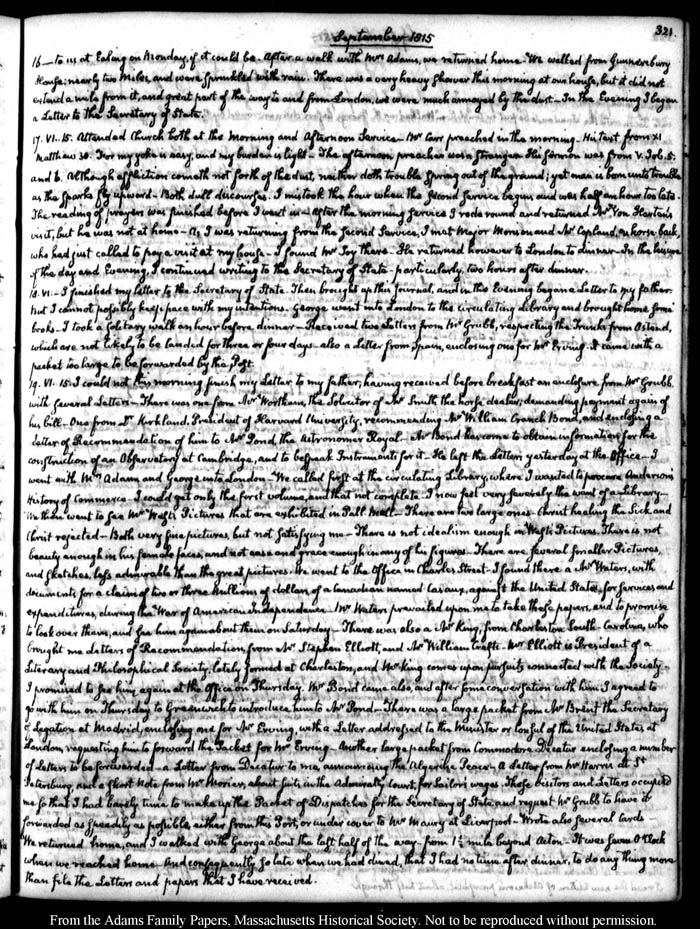 September 1815
321.
16 — to us at Ealing on Monday, if it could be. After a walk with Mrs Adams, we returned home. We walked from Gunnersbury
House; nearly two Miles, and were sprinkled with rain. There was a very heavy shower this morning at our house, but it did not
extend a mile from it, and great part of the way to and from London, we were much annoyed by the dust — In the Evening I began
a Letter to the Secretary of State.
17. VI. 15. Attended Church both at the Morning and Afternoon Service — Mr Carr preached in the morning. His text from XI.
Matthew 30. For my yoke is easy, and my burden is light — The afternoon preacher was a stranger. His Sermon was from V. Job. 5.
and 6. Although affliction cometh not forth of the dust, neither doth trouble spring out of the ground; yet man is born unto trouble
as the sparks fly upward — Both dull discourses. I mistook the hour when the second Service begins and was half an hour too late.
The reading of prayers was finished before I went in — After the morning Service I rode round and returned Mr Von
visit, but he was not at home — As I was returning from the second Service, I met Major Monson and Mr Copland, on horse-back,
who had just called to pay a visit at my house — I found Mr Joy there — He returned however to London to dinner — In the leisure
of the day and Evening, I continued writing to the Secretary of State — particularly, two hours after dinner.
18. VI. — I finished my letter to the Secretary of State. Then brought up this Journal, and in the Evening began a Letter to my father.
But I cannot possibly keep pace with my intentions. George went into London to the circulating Library and brought home some
books. I took a solitary walk an hour before dinner — Received two Letters from Mr Grubb, respecting the Trunks from Ostend,
which are not likely to be landed for three or four days — also a Letter from Spain, enclosing one for Mr Erving. It came with a
packet too large to be forwarded by the Post.
19. VI. 15. I could not this morning finish my Letter to my father, having received before breakfast an enclosure from Mr Grubb
with several Letters — There was one from Mr Wortham, the Solicitor of Mr Smith the horse dealer, demanding payment again of
his bill — One from Dr Kirkland, President of Harvard University, recommending Mr William Cranch Bond, and enclosing a
Letter of Recommendation of him to Mr Pond the Astronomer Royal — Mr Bond has come to obtain information for the
construction of an Observatory at Cambridge, and to bespeak Instruments for it — He left the Letters yesterday at the Office — I
went with Mrs Adams and George into London — We called first at the circulating Library, where I wanted to procure Anderson's
History of Commerce — I could get only the first volume, and that not complete. I now feel very severely the want of a Library —
We then went to see Mr West's Pictures that are exhibited in Pall Mall — There are two large ones — Christ healing the Sick, and
Christ rejected — Both very fine pictures, but not satisfying me — There is not idealism enough in West's Pictures. There is not
beauty enough in his female faces, and not ease and grace enough in any of his figures — There are several smaller Pictures,
and Sketches, less admirable than the great pictures. We went to the Office in Charles Street — I found there a Mr Waters, with
documents for a claim of two or three millions of dollars of a Canadian named Cazeaux, against the United States, for services and
expenditures, during the War of American Independence. Mr Waters prevailed upon me to take these papers, and to promise
to look over them, and see him again about them on Saturday — There was also a Mr King, from Charleston South Carolina, who
brought me Letters of Recommendation from Mr Stephen Elliott, and Mr William Crafts. Mr Elliott is President of a
Literary and Philosophical Society, lately formed at Charleston, and Mr King comes upon pursuits connected with the Society.
I promised to see him again at the Office on Thursday. Mr Bond came also, and after some conversation with him I agreed to
go with him on Thursday to Greenwich to introduce him to Mr Pond — There was a large packet from Mr Brent the Secretary
of Legation at Madrid, enclosing one for Mr Erving, with a Letter addressed to the Minister or Consul of the United States at
London, requesting him to forward the Packet for Mr Erving — Another large packet from Commodore Decatur enclosing a number
of Letters to be forwarded — a Letter from Decatur to me, announcing the Algerine Peace — A Letter from Mr Harris at St
Petersburg, and a short Note from Mr Morier, about suits in the Admiralty Court, for Sailors wages. These visitors and Letters occupied
me so that I had barely time to make up the Packet of Dispatches for the Secretary of State and request Mr Grubb to have it
forwarded as speedily as possible, either from this Port, or under cover to Mr Maury at Liverpool — Wrote also several cards —
We returned home, and I walked with George about the last half of the way — from 1½ mile beyond Acton — It was seven O'Clock
when we reached home — And consequently so late when we had dined, that I had no time after dinner, to do any thing more
than file the Letters and papers that I have received.
From the Adams Family Papers, Massachusetts Historical Society. Not to be reproduced without permission.